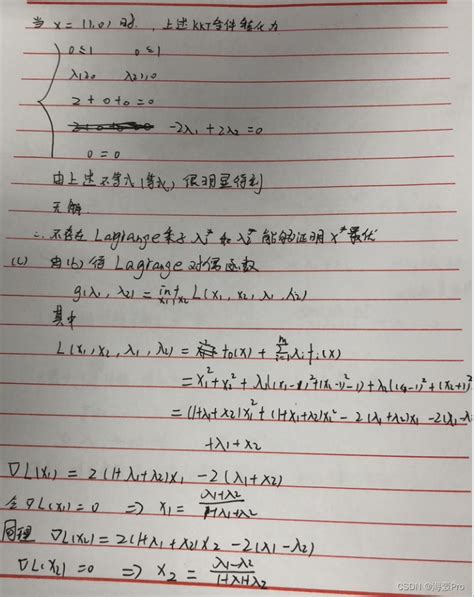 当 x = (1,0) 时, 上述KKT条件转化为
0≤1  0≤1
λ₁≥0  λ₂≥0
2+0+0=0
-2λ₁+2λ₂=0
0=0
由上述不等式(等式)很明显得到
无解.
∴不存在Lagrange乘子λ₁* 和 λ₂* 能够证明x*最优
(c) 由(b)得Lagrange对偶函数
g(λ₁, λ₂) = inf x₁,x₂ L(x₁, x₂, λ₁, λ₂)
其中
L(x₁, x₂, λ₁, λ₂) = f₀(x) + Σᵢ₌₁ᵐ λᵢfᵢ(x)
= x₁² + x₂² + λ₁((x₁-1)²+(x₂-1)²-1) + λ₂((x₁-1)²+(x₂+1)²
= (1+λ₁+λ2)x₁² + (1+λ₁+λ2)x₂² - 2(λ₁+λ2)x₁ - 2(λ₁-λ
+λ₁+λ2
∇L(x₁) = 2(1+λ₁+λ2)x₁ - 2(λ₁+λ2)
令∇L(x₁)=0 ⇒ x₁ = (λ₁+λ2)/(1+λ₁+λ2)
同理 ∇L(x₂) = 2(1+λ₁+λ2)x2 - 2(λ₁-λ2)
∇L(x₂)=0 ⇒ x₂ = (λ₁-λ2)/(1+λ1+λ2)
CSDN @海澄Pro